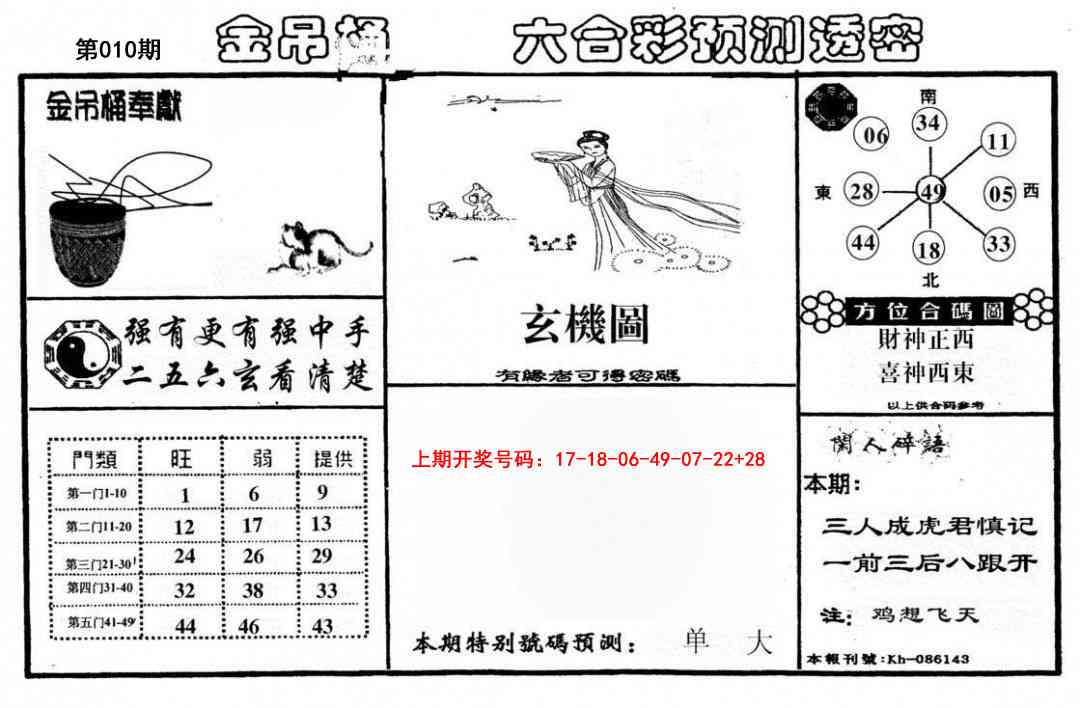 第010期
金吊桶
六合彩预测透密
金吊桶奉獻
强有更有强中手
二五六玄看清楚
門類 旺 弱 提供
第一门1-10 1 6 9
第二门11-20 12 17 13
第三门21-30 24 26 29
第四门31-40 32 38 33
第五门41-49 44 46 43
玄機圖
有緣者可得密碼
上期开奖号码：17-18-06-49-07-22+28
本期特别號碼预测： 单 大
南
06 34 11
東 28 49 05 西
44 18 33
北
方位合碼圖
財神正西
喜神西東
以上供合码参考
閑人碎語
本期：
三人成虎君慎记
一前三后八跟开
注：鸡想飞天
本報刊號:Kh-086143